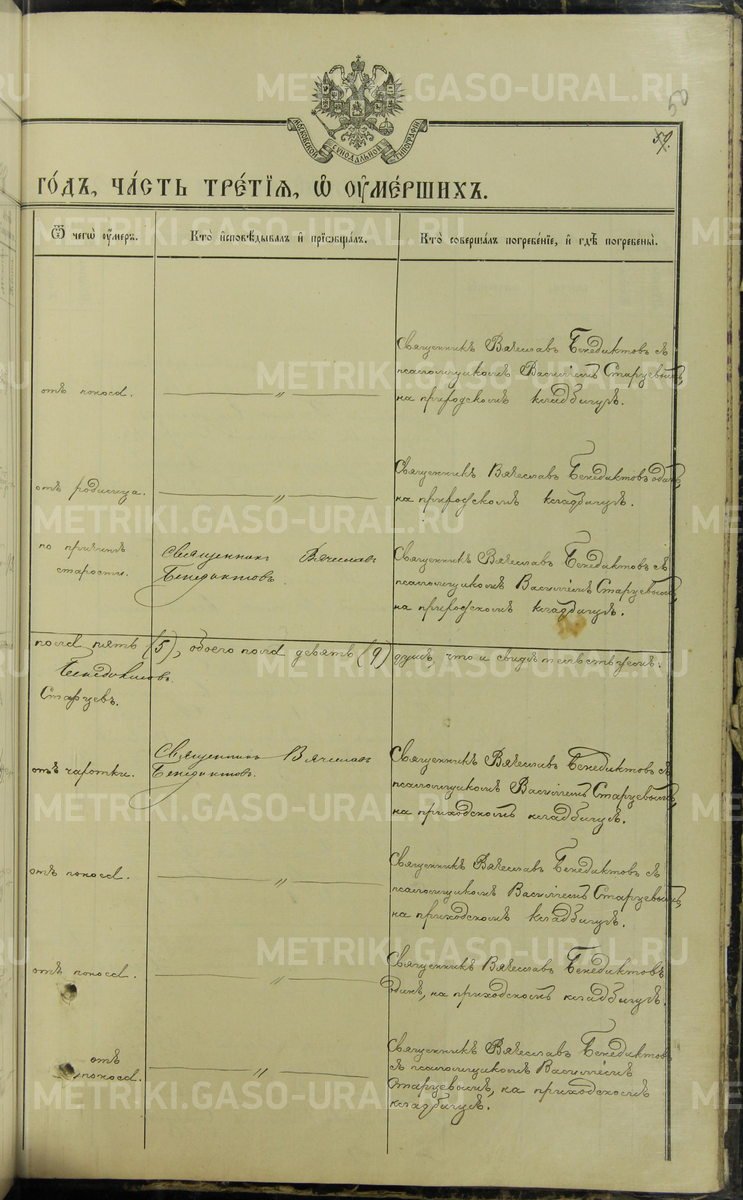 50
57.
МОСКОВСКОЙ СѴНОДАЛЬНОЙ ТИПОГРАФІИ
ГО́ДЪ, ЧА́СТЬ ТРЕ́ТІѦ, Ѽ ОУ҆МЕ́РШИХЪ.
Ѿ чегѡ̀ оу҆́меръ.
Кто̀ и҆сповѣ́дывалъ и҆ прїѡбща́лъ.
Кто̀ соверша́лъ погребе́нїе, и҆ гдѣ̀ погребены̀.
отъ поноса.
— „ —
Священникъ Вячеславъ Бенедиктовъ съ
псаломщикомъ Василіемъ Старцевымъ,
на приходскомъ кладбищѣ.
отъ родимца.
— „ —
Священникъ Вячеславъ Бенедиктовъ одинъ,
на приходскомъ кладбищѣ.
по причинѣ
старости.
Священникъ Вячеславъ
Бенедиктовъ.
Священникъ Вячеславъ Бенедиктовъ съ
псаломщикомъ Василіемъ Старцевымъ,
на приходскомъ кладбищѣ.
пола пять (5), обоего пола девять (9) душъ, что и свидѣтельствуемъ:
Бенедиктовъ.
Старцевъ.
отъ чахотки.
Священникъ Вячеславъ
Бенедиктовъ.
Священникъ Вячеславъ Бенедиктовъ съ
псаломщикомъ Василіемъ Старцевымъ,
на приходскомъ кладбищѣ.
отъ поноса.
— „ —
Священникъ Вячеславъ Бенедиктовъ съ
псаломщикомъ Василіемъ Старцевымъ,
на приходскомъ кладбищѣ.
отъ поноса.
— „ —
Священникъ Вячеславъ Бенедиктовъ
одинъ, на приходскомъ кладбищѣ.
отъ
поноса.
— „ —
Священникъ Вячеславъ Бенедиктовъ
съ псаломщикомъ Василіемъ
Старцевымъ, на приходскомъ
кладбищѣ.
METRIKI.GASO-URAL.RU